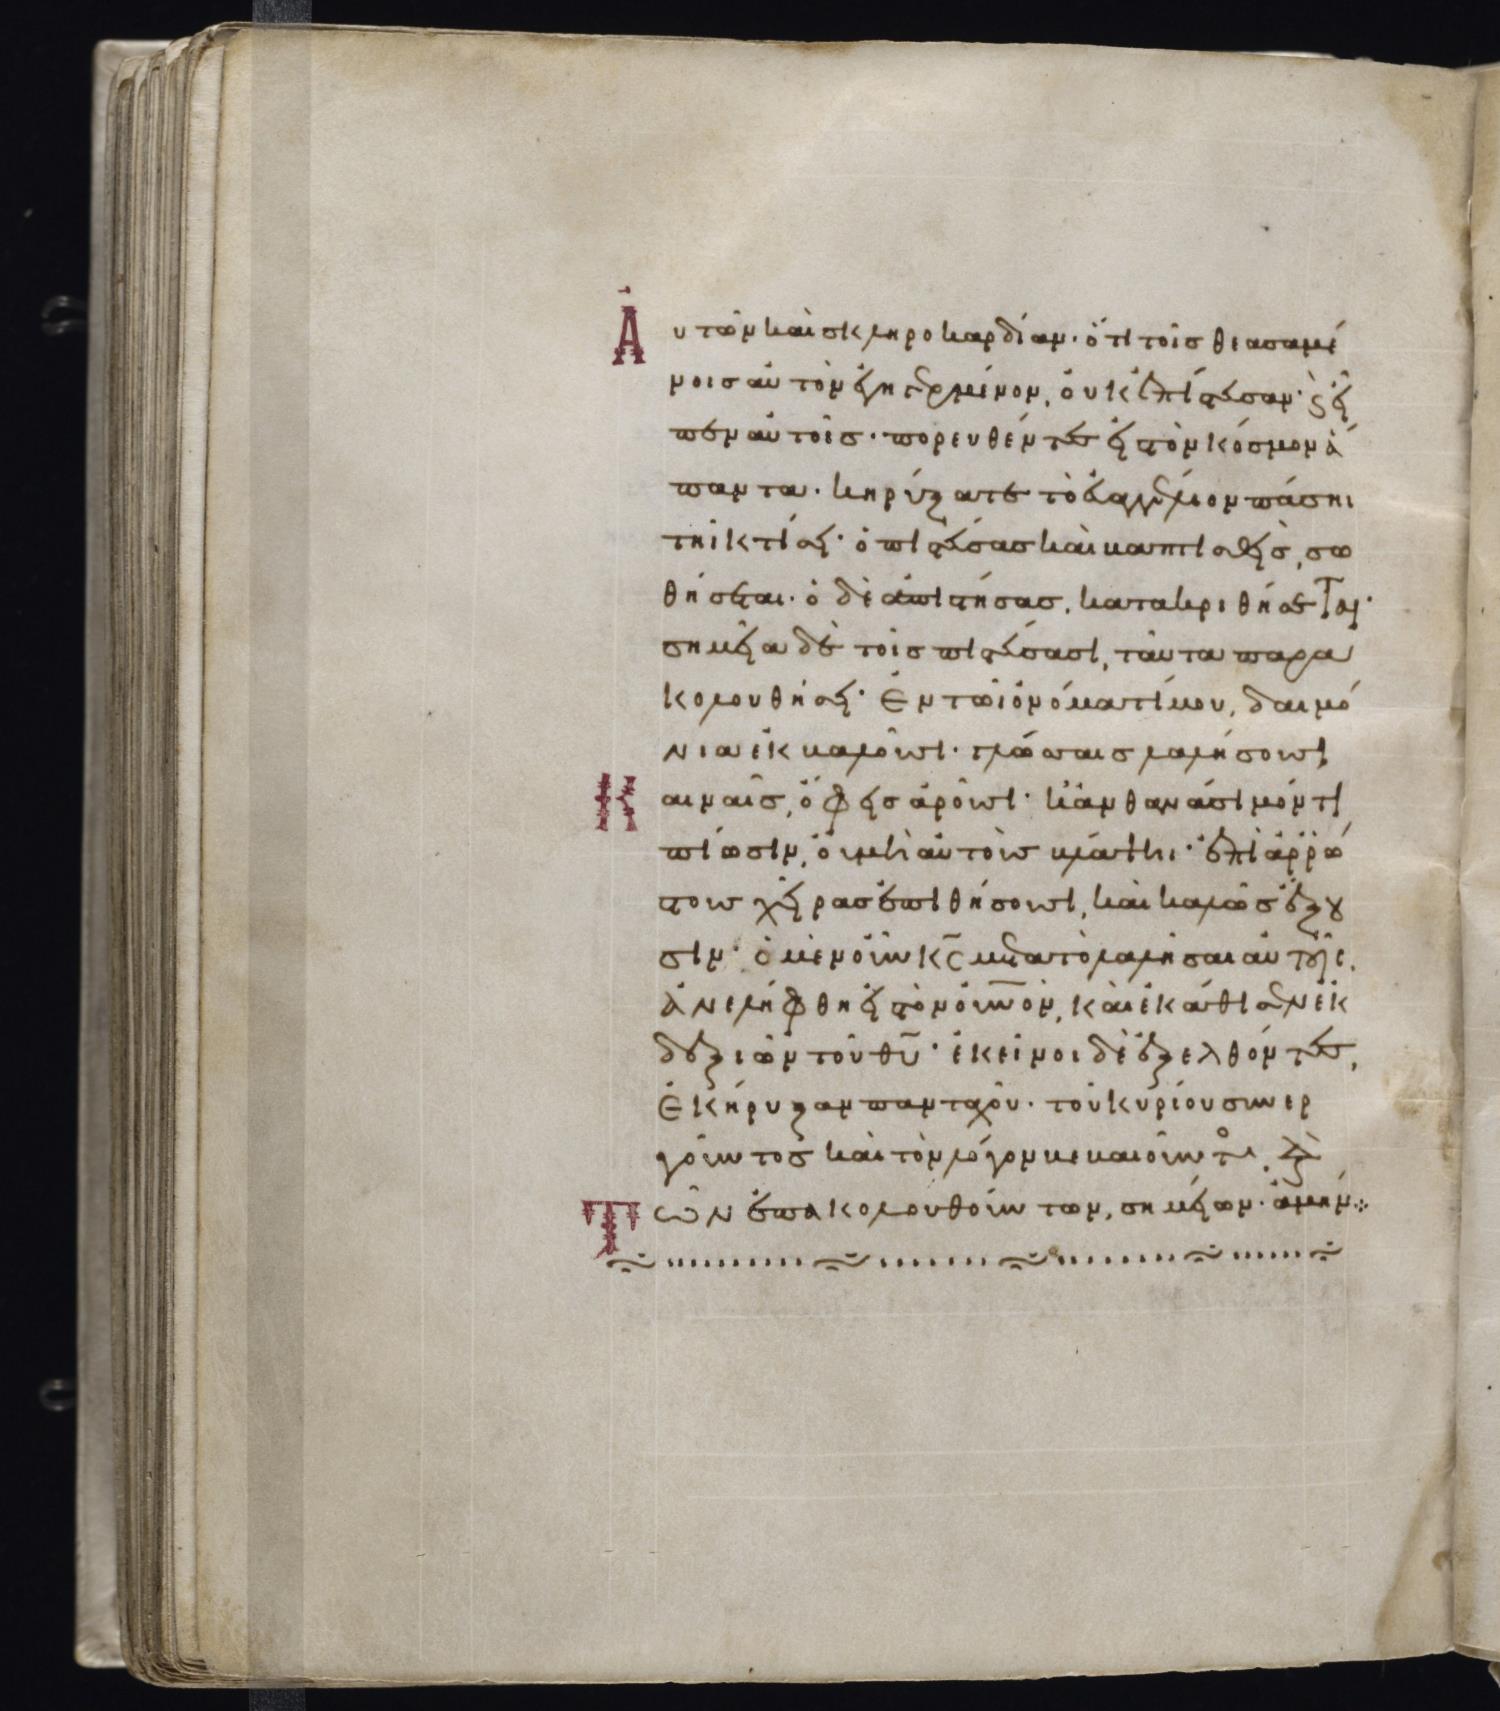 Αὐτῶν καὶ σκληροκαρδίαν· ὅτι τοῖς θεασαμέ
νοις αὐτὸν ἐγηγερμένον, οὐκ ἐπίστευσαν· ϛ εἶ
πεν αὐτοῖς· πορευθέντες εἰς τὸν κόσμον ἅ
παντα· κηρύξατε τὸ εὐαγγέλιον πάσηι
τῆι κτίσει· ὁ πιστεύσας καὶ βαπτισθεὶς, σω
θήσεται· ὁ δὲ ἀπιστήσας, κατακριθήσεται·
σημεῖα δὲ τοῖς πιστεύσασι, ταῦτα παρα
κολουθήσει· Ἐν τῶι ὀνόματί μου, δαιμό
νια ἐκβαλοῦσι· γλώσσαις λαλήσουσι,
Καιναῖς, ὄφεις ἀροῦσι· κἂν θανάσιμόν τι
πίωσιν, οὐ μὴ αὐτοὺς βλάψηι· ἐπὶ ἀῤῥώ
στους χεῖρας ἐπιθήσουσι, καὶ καλῶς ἕξου
σιν· ὁ μὲν οὖν κ̅ς̅ μετὰ τὸ λαλῆσαι αὐτοῖς,
ἀνελήφθη εἰς τὸν ο̅υ̅νον, καὶ ἐκάθισεν ἐκ
δεξιῶν τοῦ θ̅υ̅· ἐκεῖνοι δὲ ἐξελθόντες,
Ἐκήρυξαν πανταχοῦ· τοῦ κυρίου συνερ
γοῦντος καὶ τὸν λόγον βεβαιοῦντος, διὰ
Τῶν ἐπακολουθούντων, σημείων· ἀμήν⁘